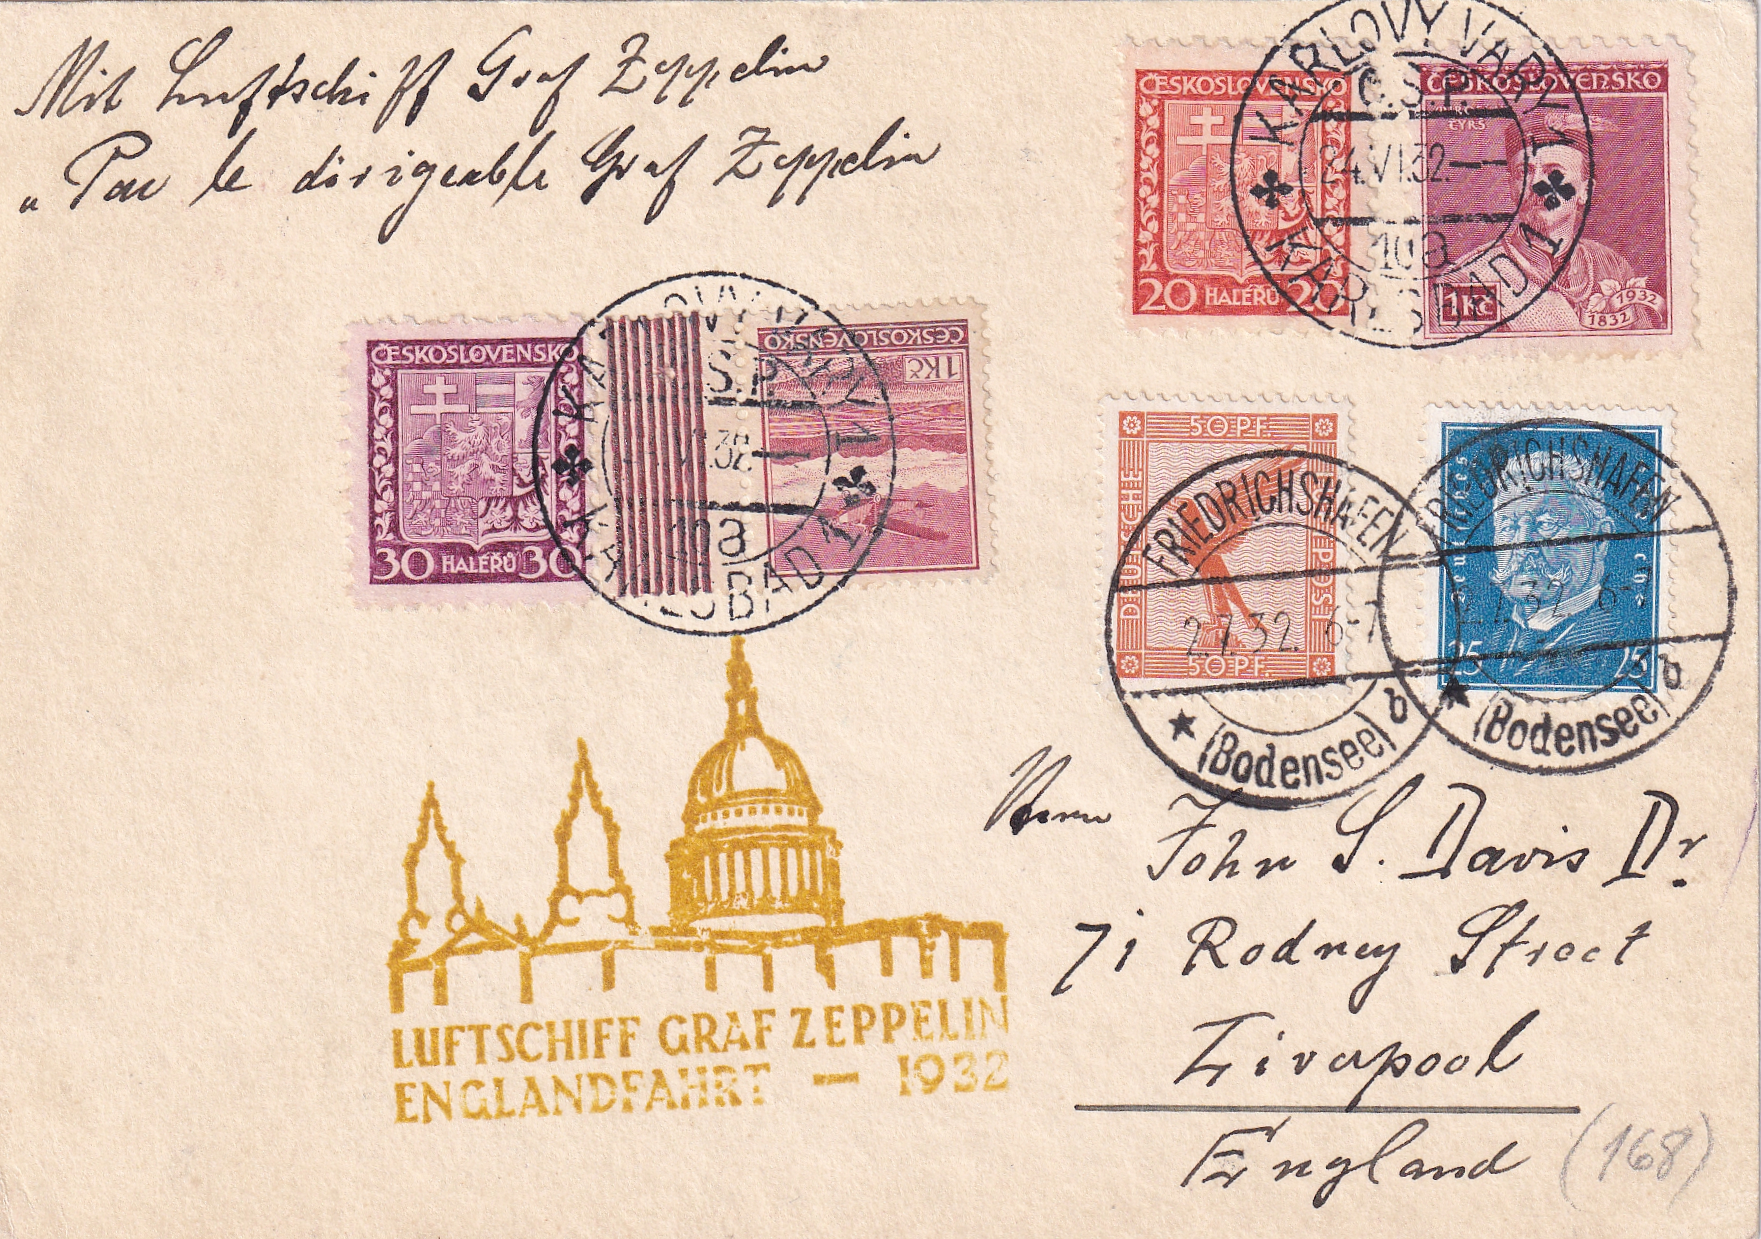 Mit Luftschiff Graf Zeppelin
"Par le dirigeable Graf Zeppelin
ČESKOSLOVENSKO
20 HALÉŘŮ 20
ČESKOSLOVENSKO
TYRŠ
1Kč
1932
1832
KARLOVY VARY 1
Č.S.P.
24.VI.32.
10a
KARLSBAD 1
ČESKOSLOVENSKO
30 HALÉŘŮ 30
ČESKOSLOVENSKO
1Kč
KARLOVY VARY 1
Č.S.P.
VI.32.
10a
KARLSBAD 1
50 PF.
DEUTSCHE
50 PF.
25 25
FRIEDRICHSHAFEN
2.7.32. 6-7
b
(Bodensee)
FRIEDRICHSHAFEN
2.7.32. 6-7
b
(Bodensee)
LUFTSCHIFF GRAF ZEPPELIN
ENGLANDFAHRT — 1932
Herrn
John S. Davis Dr.
71 Rodney Street
Liverpool
England
(168)